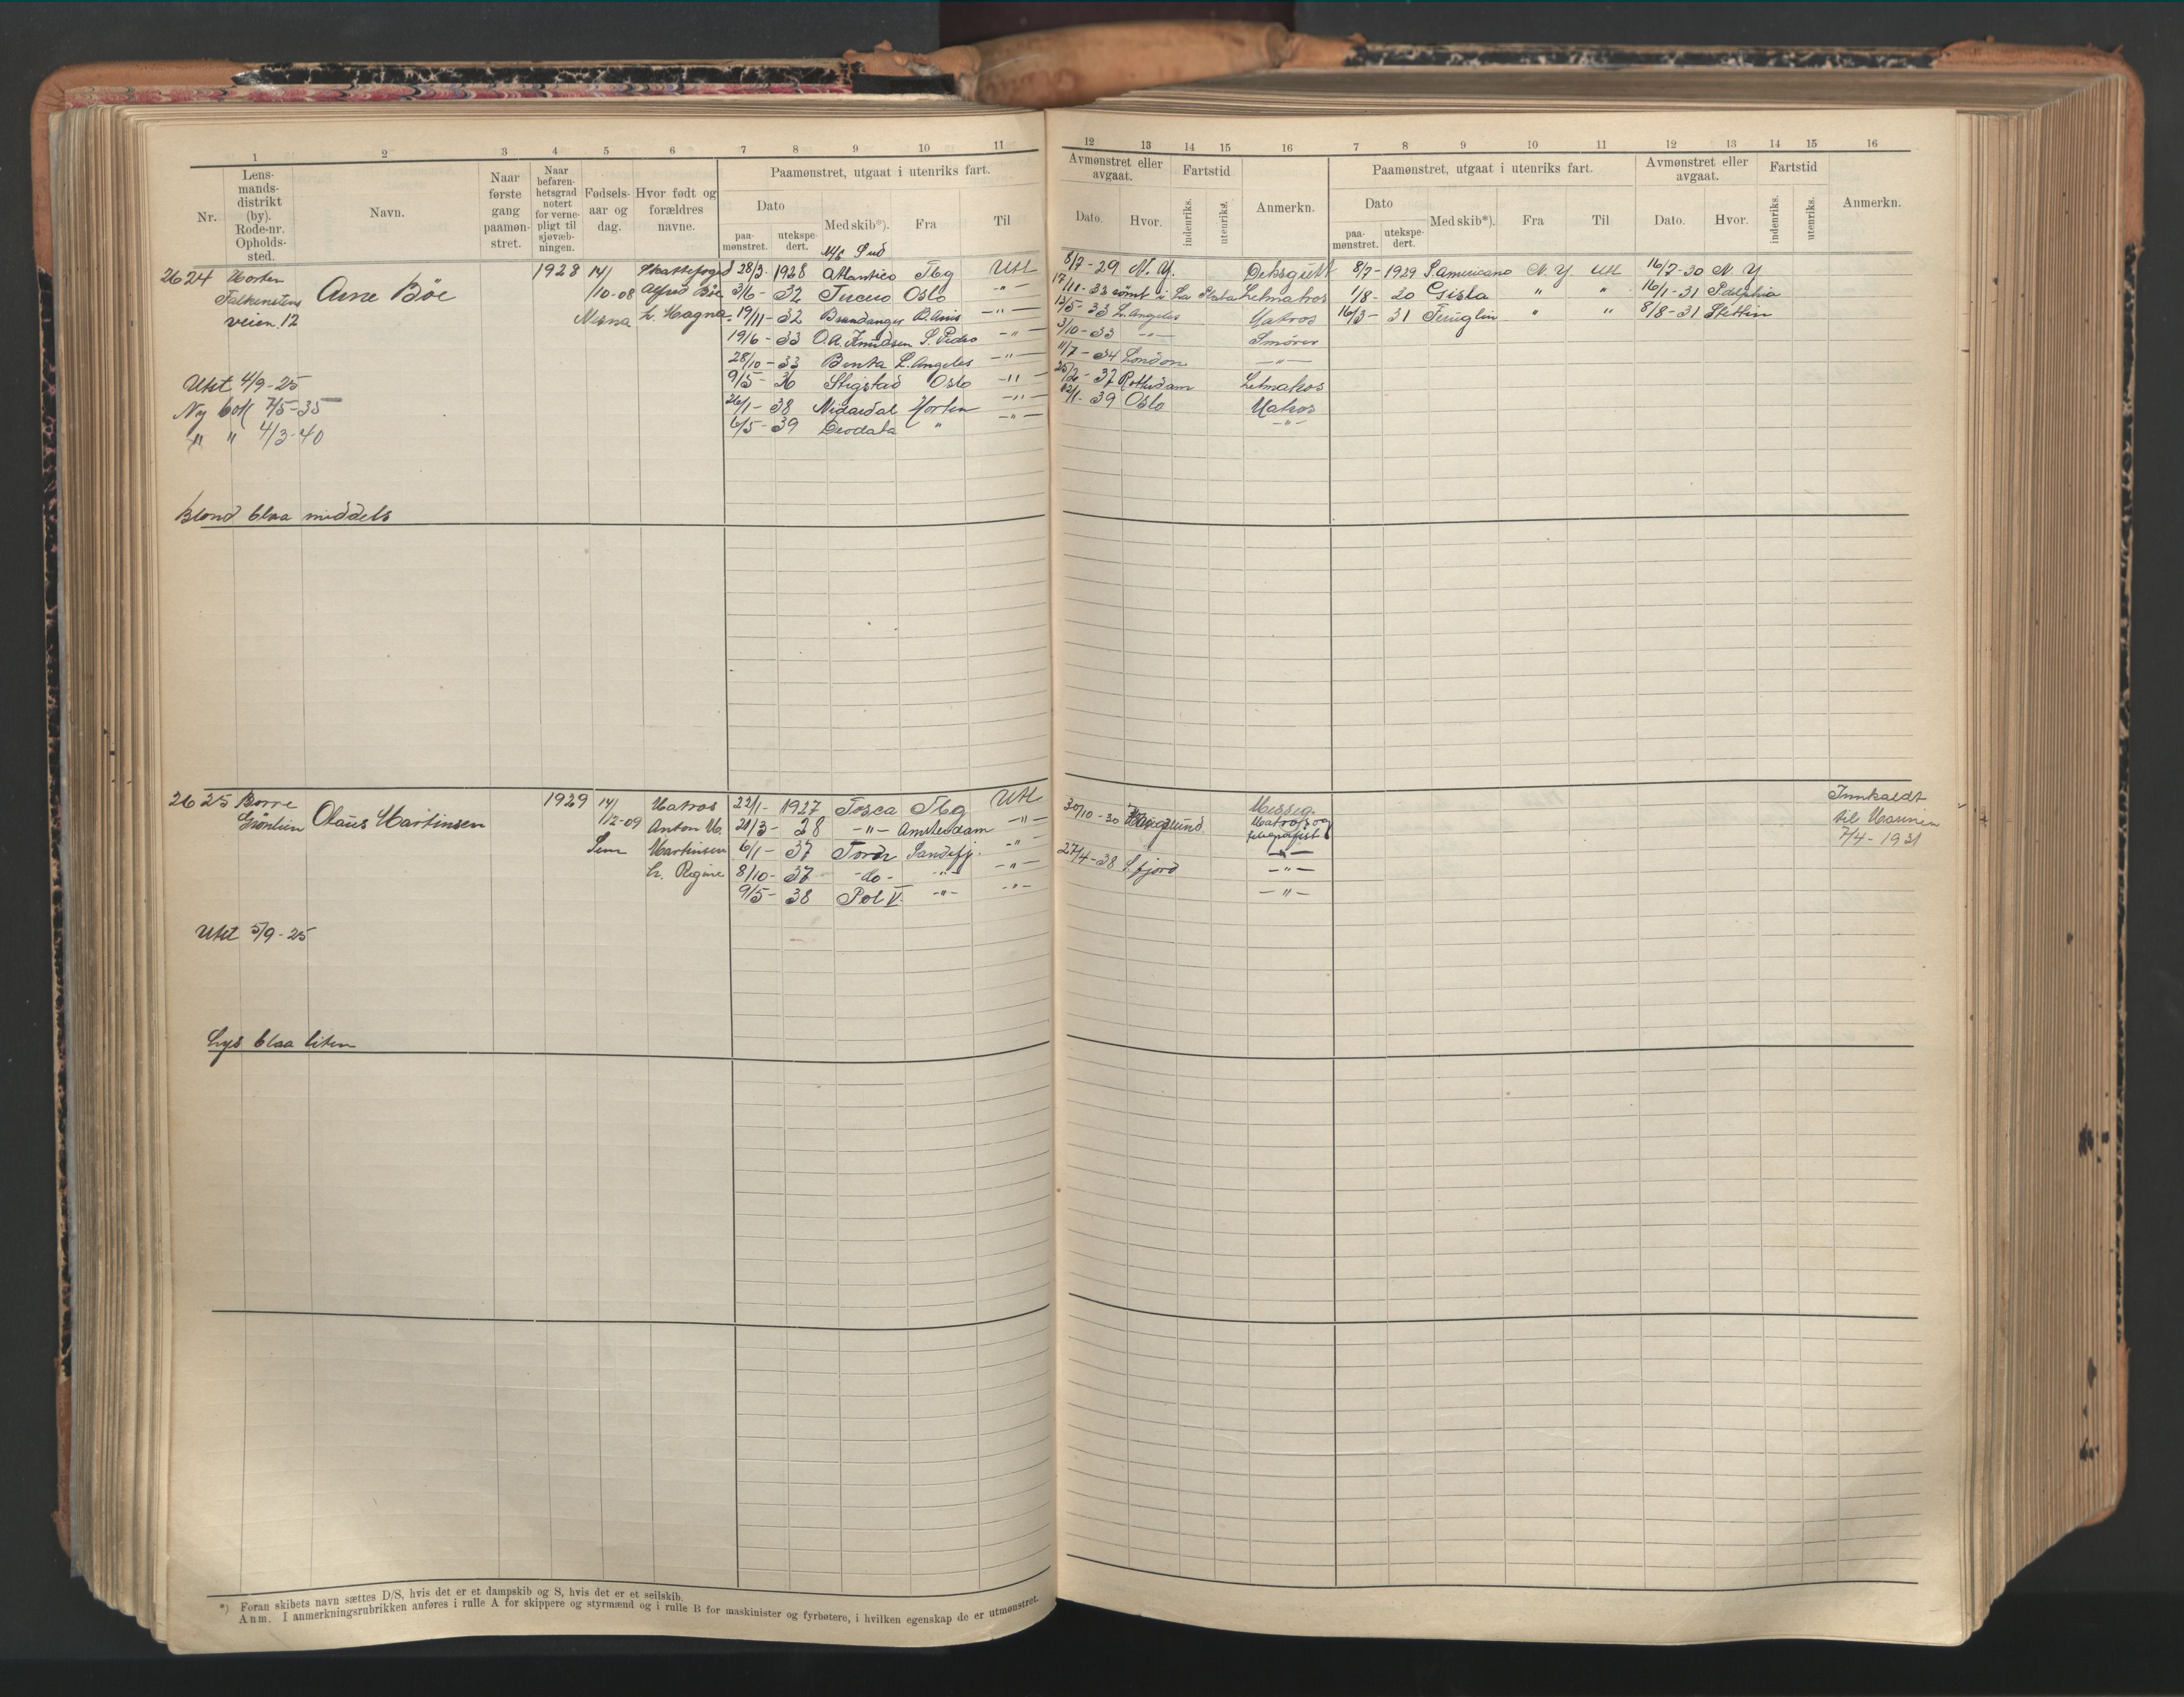 1 2 3 4 5 6 7 8 9 10 11
Nr.
Lens-
mands-
distrikt
(by).
Rode-nr.
Opholds-
sted.
Navn.
Naar
første
gang
paamøn-
stret.
Naar
befaren-
hetsgrad
notert
for verne-
pligt til
sjøvæb-
ningen.
Fødsels-
aar og
dag.
Hvor født og
forældres
navne.
Paamønstret, utgaat i utenriks fart.
Dato
paa-
mønstret.
utekspe-
dert.
Med skib*).
Fra
Til
12 13 14 15 16 7 8 9 10 11 12 13 14 15 16
Avmønstret eller
avgaat.
Dato.
Hvor.
Fartstid
indenriks.
utenriks.
Anmerkn.
Paamønstret, utgaat i utenriks fart.
Dato
paa-
mønstret.
utekspe-
dert.
Med skib*).
Fra
Til
Avmønstret eller
avgaat.
Dato.
Hvor.
Fartstid
indenriks.
utenriks.
Anmerkn.
2624 Horten
Falkenstens
veien 12
Arne Böe
1928
14/
/10-08
Skattefoged
Alfred Böe
h. Magna
M/S Sud
28/3- 1928 Atlantico Tbg Utl
3/6- 32 Tercero Oslo -"-
19/11- 32 Brandanger B. Aires -"-
19/6- 33 O.A. Knudsen S. Pedro -"-
28/10- 33 Benta L. Angeles -"-
9/5- 36 Stigstad Oslo -"-
26/1- 38 Nidardal Horten -"-
6/5- 39 Deodata " -"-
8/7-29 N.Y. Deksgutt
17/11-32 römt i La Plata Letmatros
13/5-33 L. Angeles Matros
3/10-33 -"- Smörer
11/7-34 London -"-
37 Rotterdam Letmatros
39 Oslo Matros
-"-
8/7- 1929 S. Americano N.Y Utl 16/7-30 N.Y
1/8- 30 Gisla " " 16/1-31 P.delphia
16/3- 31 Teneglin " " 8/8-31 Stettin
Utst 4/9-25
Ny bok 7/5-35
" " 4/3-40
Blond blaa middels
2625 Borre
Grönlien
Olaus Martinsen
1929
14/
/12-09
Sem
Matros
Anton M.
Martinsen
h. Regine
22/1- 1927 Tosca Tbg Utl
21/3- 28 -"- Amsterdam -"-
6/1- 37 Tordr Sandefj. -"-
8/10- 37 -do- -"- -"-
9/5- 38 Pol V. -"- -"-
30/10-30 Haugesund
27/4-38 S.fjord
Messeg.
Matros og
telegrafist
-"-
-"-
-"-
Innkaldt
til Marinen
7/4-1931
Utst 5/9-25
Lys blaa liten
*) Foran skibets navn sættes D/S, hvis det er et dampskib og S, hvis det er et seilskib.
Anm. I anmerkningsrubrikken anføres i rulle A for skippere og styrmænd og i rulle B for maskinister og fyrbøtere, i hvilken egenskap de er utmønstret.